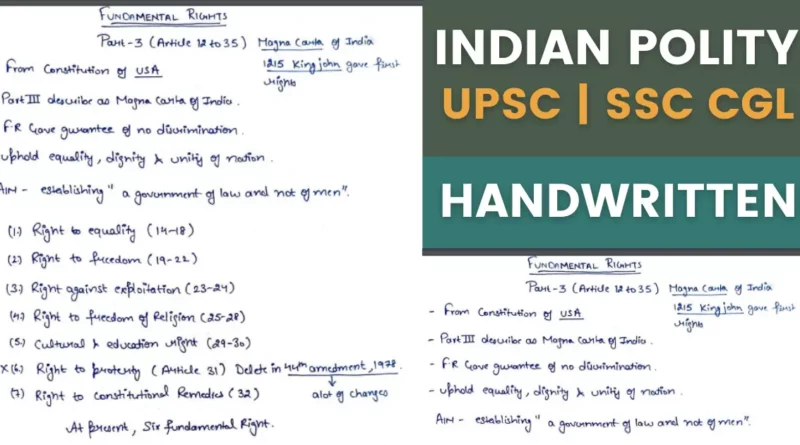 FUNDAMENTAL RIGHTS
Part-3 (Article 12 to 35) Magna Carta of India
From Constitution of USA 1215 King john gave first
rights
Part III describe as Magna Carta of India.
F.R Gave gurantee of no discrimination.
uphold equality, dignity & unity of nation.
AIN - establishing " a government of law and not of men".
(1.) Right to equality (14-18)
(2.) Right to freedom (19-22)
(3.) Right against exploitation (23-24)
(4.) Right to freedom of Religion (25-28)
(5.) Cultural & education right (29-30)
X(6.) Right to proterty (Article 31) Delete in 44th amedment, 1978
(7) Right to Constitutional Remedies (32) alot of changes
At present, Six fundamental Right.
INDIAN POLITY
UPSC | SSC CGL
HANDWRITTEN
FUNDAMENTAL RIGHTS
Part-3 (Article 12 to 35) Magna Carta of India
- From Constitution of USA 1215 King john gave first
rights
- Part III describe as Magna Carta of India.
- F.R Gave gurantee of no discrimination.
- uphold equality, dignity & unity of nation.
AIN - establishing " a government of law and not of men".